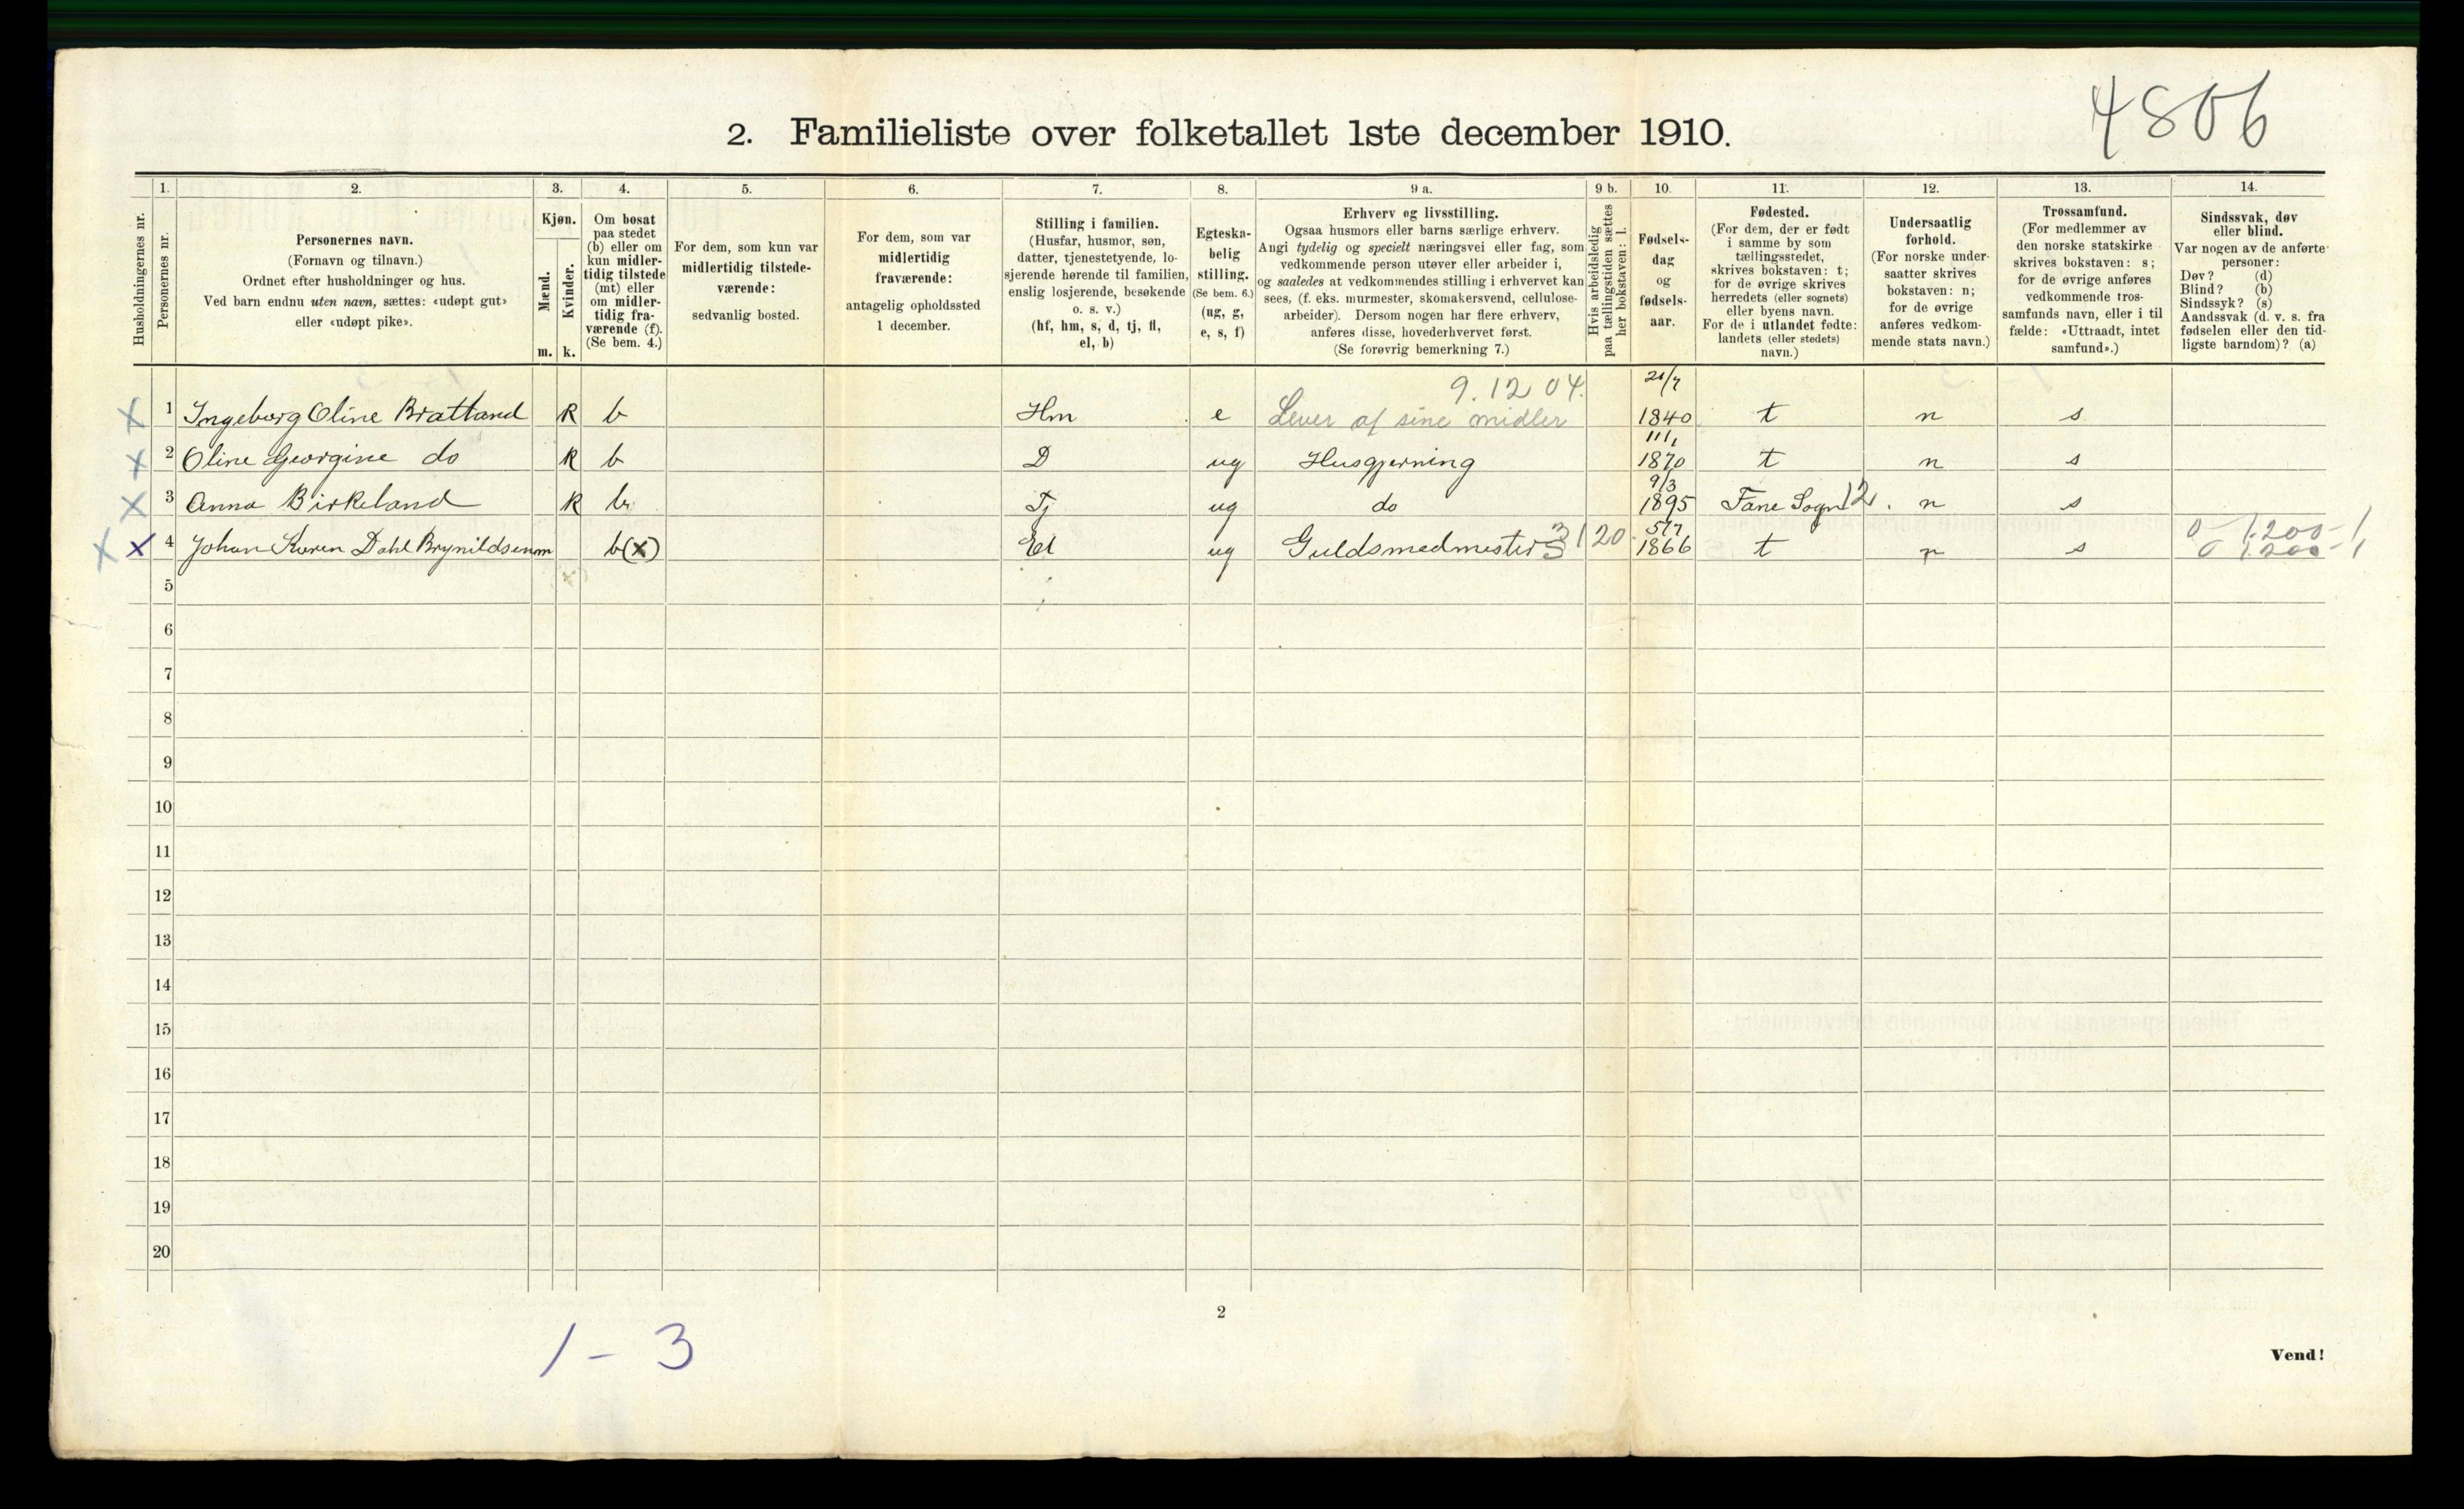 4806
2. Familieliste over folketallet 1ste december 1910.
Husholdningernes nr.
1.
Personernes nr.
2.
Personernes navn.
(Fornavn og tilnavn.)
Ordnet efter husholdninger og hus.
Ved barn endnu uten navn, sættes: «udøpt gut»
eller «udøpt pike».
3.
Kjøn.
Mænd.
Kvinder.
m. k.
4.
Om bosat
paa stedet
(b) eller om
kun midler-
tidig tilstede
(mt) eller
om midler-
tidig fra-
værende (f).
(Se bem. 4.)
5.
For dem, som kun var
midlertidig tilstede-
værende:
sedvanlig bosted.
6.
For dem, som var
midlertidig
fraværende:
antagelig opholdssted
1 december.
7.
Stilling i familien.
(Husfar, husmor, søn,
datter, tjenestetyende, lo-
sjerende hørende til familien,
enslig losjerende, besøkende
o. s. v.)
(hf, hm, s, d, tj, fl,
el, b)
8.
Egteska-
belig
stilling.
(Se bem. 6.)
(ug, g,
e, s, f)
9 a.
Erhverv og livsstilling.
Ogsaa husmors eller barns særlige erhverv.
Angi tydelig og specielt næringsvei eller fag, som
vedkommende person utøver eller arbeider i,
og saaledes at vedkommendes stilling i erhvervet kan
sees, (f. eks. murmester, skomakersvend, cellulose-
arbeider). Dersom nogen har flere erhverv,
anføres disse, hovederhvervet først.
(Se forøvrig bemerkning 7.)
9 b.
Hvis arbeidsledig
paa tællingstiden sættes
her bokstaven: l.
10.
Fødsels-
dag
og
fødsels-
aar.
11.
Fødested.
(For dem, der er født
i samme by som
tællingsstedet,
skrives bokstaven: t;
for de øvrige skrives
herredets (eller sognets)
eller byens navn.
For de i utlandet fødte:
landets (eller stedets)
navn.)
12.
Undersaatlig
forhold.
(For norske under-
saatter skrives
bokstaven: n;
for de øvrige
anføres vedkom-
mende stats navn.)
13.
Trossamfund.
(For medlemmer av
den norske statskirke
skrives bokstaven: s;
for de øvrige anføres
vedkommende tros-
samfunds navn, eller i til
fælde: «Uttraadt, intet
samfund».)
14.
Sindssvak, døv
eller blind.
Var nogen av de anførte
personer:
Døv? (d)
Blind? (b)
Sindssyk? (s)
Aandssvak (d. v. s. fra
fødselen eller den tid-
ligste barndom)? (a)
9.12 04.
x 1 Ingeborg Oline Brattland K b Hm e Lever af sine midler 21/7 1840 t n s
x 2 Oline Georgine do K b D ug Husgjerning 11/1 1870 t n s
x 3 Anna Birkeland K b Tj ug do 9/3 1895 Fane Sogn 12. n s
x x 4 Johan Koren Dahl Brynildsen m b(x) El ug Guldsmedmester 3 3120. 5/7 1866 t n s 0 1.200-1
0 1.200-1
5
6
7
8
9
10
11
12
13
14
15
16
17
18
19
20
2
1-3
Vend!